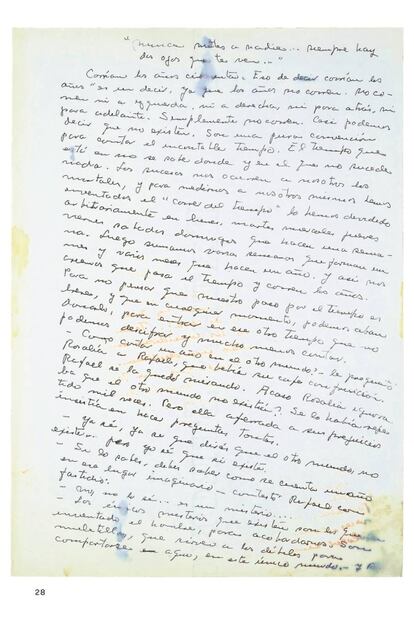 "nunca mates a nadie... siempre hay
dos ojos que te ven..."
Corrían los años cincuenta. Eso de decir corrían los
años "es un decir, ya que los años no corren. No co-
rren ni a izquierda, ni a derecha, ni para atrás, ni
para adelante. Simplemente no corren. Casi podemos
decir que no existen. Son una pura convención
para contar el incontable tiempo. El tiempo que
está en no se sabe donde y en el que no sucede
nada. Los sucesos nos ocurren a nosotros los
mortales, y para medirnos a nosotros mismos hemos
inventado el "correr del tiempo" lo hemos dividido
arbitrariamente en lunes, martes miercoles jueves
viernes sábados domingos que hacen una sema-
na. Luego sumamos varias semanas que forman un
mes y varios meses que hacen un año. Y así nos
creemos que pasa el tiempo y corren los años.
Para no pensar que nuestro paso por el tiempo es
breve, y que en cualquier momento, podemos aban
donarlo, para entrar en ese otro tiempo que no
podemos descifrar y mucho menos contar.
- Como contar un año en el otro mundo? - le preguntó
Rosalía a Rafael, que bebía su café con fruición.
Rafael se la quedó mirando. Acaso Rosalía ignora
ba que el otro mundo no existía? Se lo había repe
tido mil veces. Pero ella aferrada a sus prejuicios
insistía en hacer preguntas tontas.
- Ya sé, ya se que dirás que el otro mundo, no
existe... pero yo sé que si existe.
- Si lo sabes, debes saber como se cuenta un año
en ese lugar imaginario - contestó Rafael con
fastidio.
- No, no lo sé... es un misterio...
- Los únicos misterios que existen son los que
inventado el hombre, para acobardarnos. Son
muletillas, que sirven a los débiles para
comportarse en aquí, en este único mundo. - y R
28